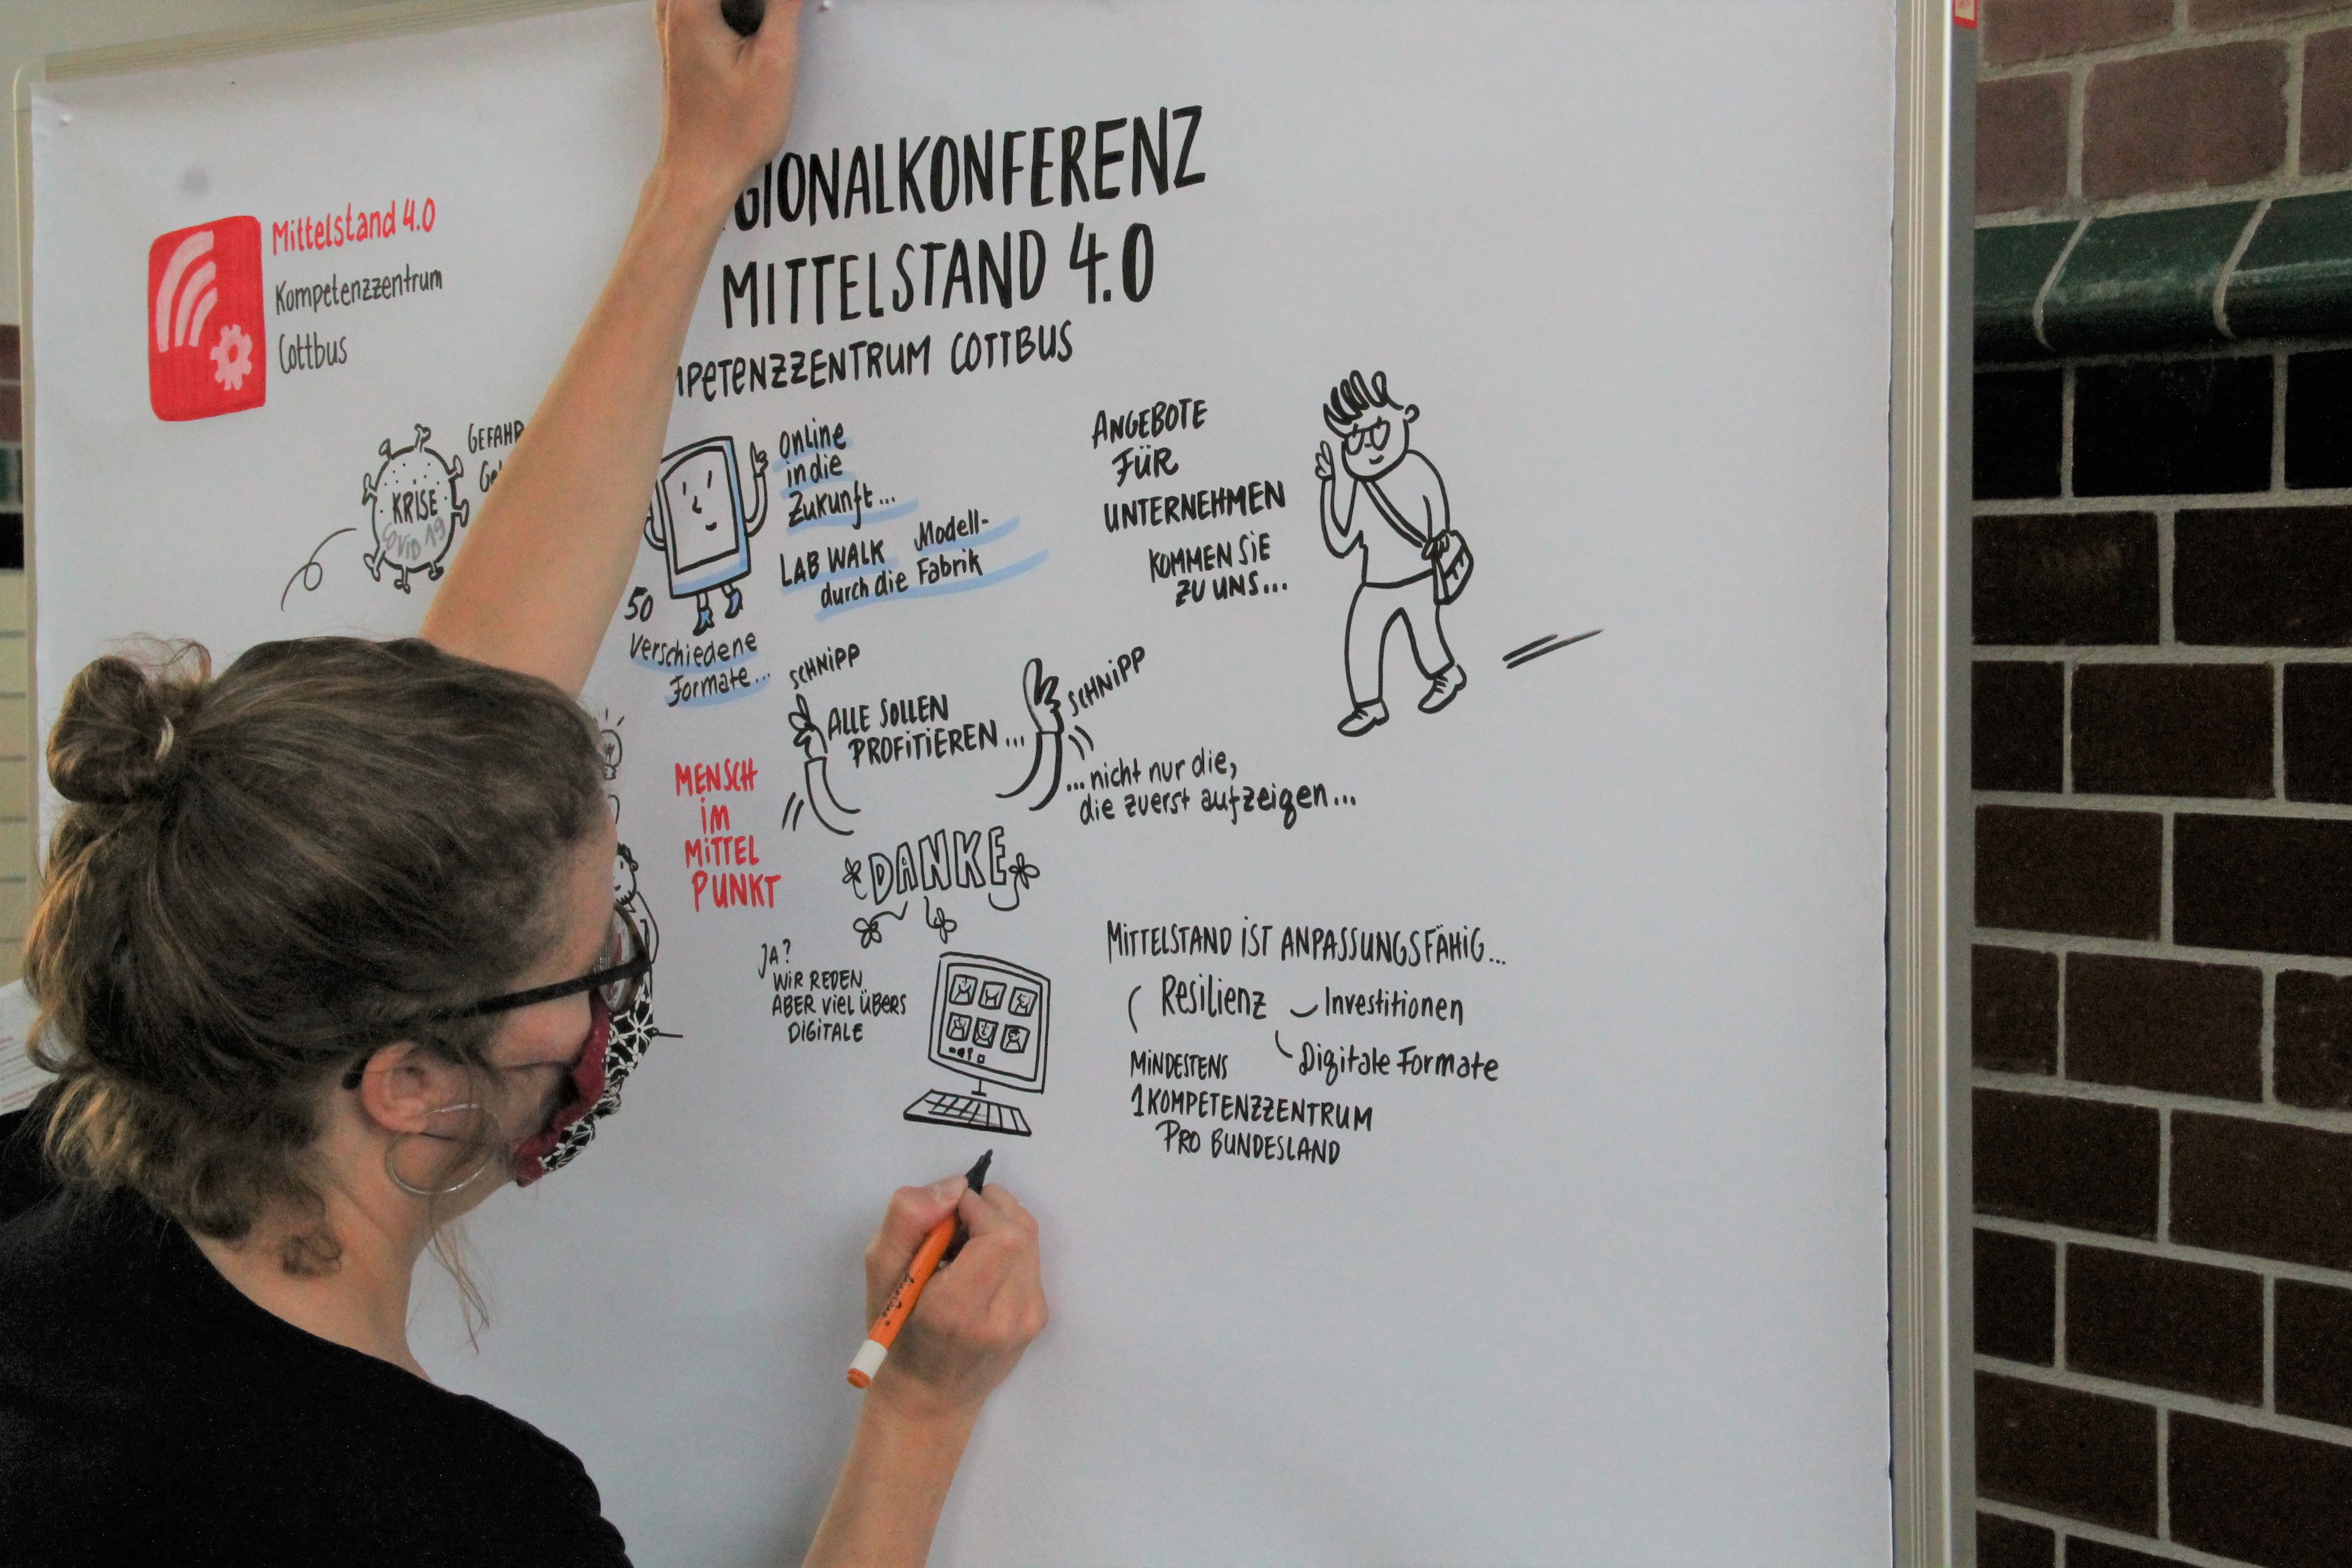 Mittelstand 4.0
Kompetenzzentrum
Cottbus
GIONALKONFERENZ
MITTELSTAND 4.0
MPETENZZENTRUM COTTBUS
GEFAHR
KRISE
COVID 19
Online
in die
Zukunft...
LAB WALK Modell-
durch die Fabrik
50
Verschiedene
Formate...
ANGEBOTE
FÜR
UNTERNEHMEN
KOMMEN SIE
ZU UNS...
SCHNIPP
ALLE SOLLEN
PROFITIEREN...
SCHNIPP
...nicht nur die,
die zuerst aufzeigen...
MENSCH
im
MITTEL
PUNKT
DANKE
JA?
WIR REDEN
ABER VIEL ÜBERS
DIGITALE
MITTELSTAND IST ANPASSUNGSFÄHIG...
Resilienz
Investitionen
Digitale Formate
MINDESTENS
1 KOMPETENZZENTRUM
PRO BUNDESLAND